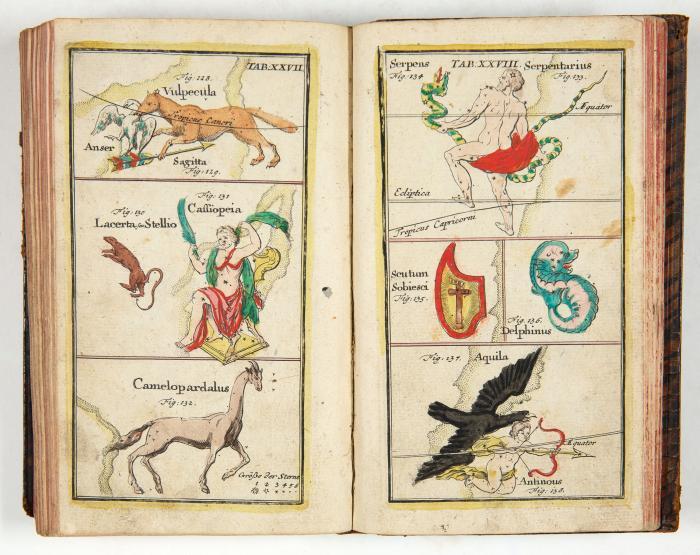 TAB.XXVII.
Fig: 128.
Vulpecula
Tropicus Cancri
Anser
Sagitta
Fig: 129.
Fig: 130
Lacerta, sive Stellio
Fig: 131
Cassiopeia
Camelopardalus
Fig: 132.
Größe der Sterne
1 2 3 4 5 6
Serpens TAB.XXVIII. Serpentarius
Fig: 134 Fig: 133.
Æquator
Ecliptica
Tropicus Capricorni
Scutum
Sobiesci
Fig: 135.
Fig: 136.
Delphinus
Fig: 137. Aquila
Æquator
Antinous
Fig: 138.